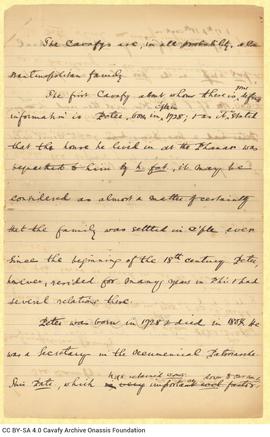 The Cavafys are, in all probability, a Con
stantinopolitan family.
The first Cavafy about whom there is some
information is Peter, born in 1728; & as it is stated
that the house he lived in at the Phanar was
bequeathed to him by h. fat., it may be
considered as almost a matter of certainty
that the family was settled in C'ple ever
since the beginning of the 18th century. Peter,
however, resided for many years in & had
several relations there.
Peter was born in 1728 & died in 1804. He
was a Secretary in the Oecumenical Patriarchate.
which important post
CC BY-SA 4.0 Cavafy Archive Onassis Foundation